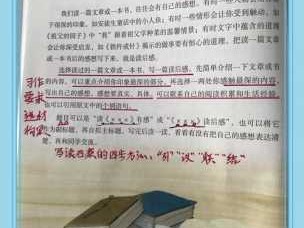 我们读一篇文章或一本书，往往会有自己的感想。有时一些人物会给你
留下深的印象，如安徒生童话中的小人鱼；有时一些情节会让你受到触动，如
《祖父的园子》中“我”跟着祖父种菜的温馨情景；有时文字中蕴含的道理
会让你深受启发，如《铁杵成针》揭示的做事要有恒心的道理。把读一篇文章
或一本书后的感想写下来，就是读后感。
选择读过的一篇文章或一本书，写一篇读后感。先简单介绍一下文章或书
的内容，可以重点介绍你印象最深的部分。再选择一两处你感触最深的内容，
写出自己的感想，感想要真实、具体。可以联系自己的阅读积累和生活经验，
也可以引用原文中的个别语句。
题目可以是“读《 》有感”或“《 》读后感”，也可以将它
作为副标题，再自拟主标题。写完后读一读，看看有没有把自己的感想表达清
楚，再和同学交流。
写作
要求
选材
构思
写读后感的四步方法：“引”“议”“联”“结”